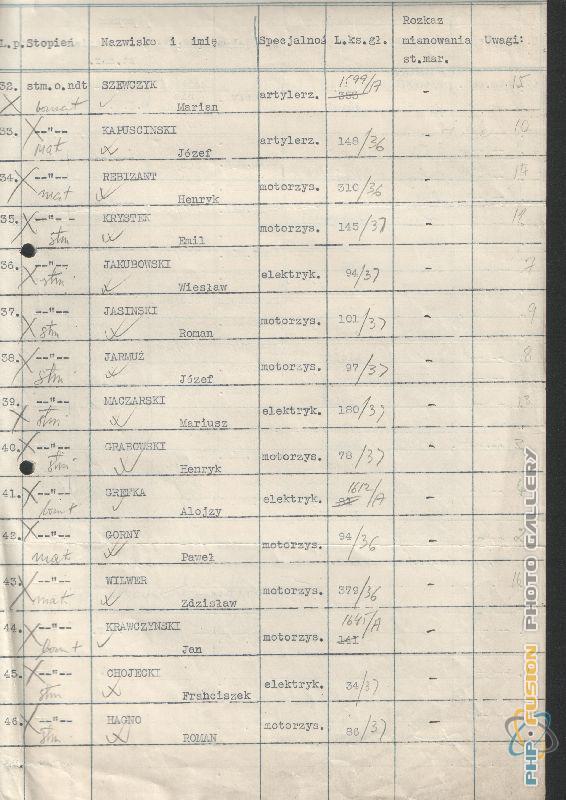 Rozkaz
L.p. Stopień Nazwisko i imię Specjalnoś L.ks.gł. mianowania Uwagi:
st.mar.
32. stm.o.ndt SZEWCZYK artylerz. 1599/A 353 - 15
bosmat Marian
33. --"-- KAPUSCINSKI artylerz. 148/36 - 10
mat Józef
34. --"-- REBIZANT motorzys. 310/36 - 14
mat Henryk
35. --"-- KRYSTEK motorzys. 145/37 - 11
stm Emil
36. --"-- JAKUBOWSKI elektryk. 94/37 - 7
stm Wiesław
37. --"-- JASINSKI motorzys. 101/37 - 9
stm Roman
38. --"-- JARMUŻ motorzys. 97/37 - 8
stm Józef
39. --"-- MACZARSKI elektryk. 180/37 - 13
stm Mariusz
40. --"-- GRABOWSKI motorzys. 78/37 -
stm Henryk
41. --"-- GREPKA elektryk. 1612/A -
bosmt Alojzy
42. --"-- GORNY motorzys. 94/36 -
mat Paweł
43. --"-- WILWER motorzys. 379/36 -
mat Zdzisław
44. --"-- KRAWCZYNSKI motorzys. 1645/A 141 -
bosmt Jan
45. --"-- CHOJECKI elektryk. 34/37 -
stm Franciszek
46. --"-- HAGNO motorzys. 86/37 -
stm ROMAN
PHP-FUSION PHOTO GALLERY